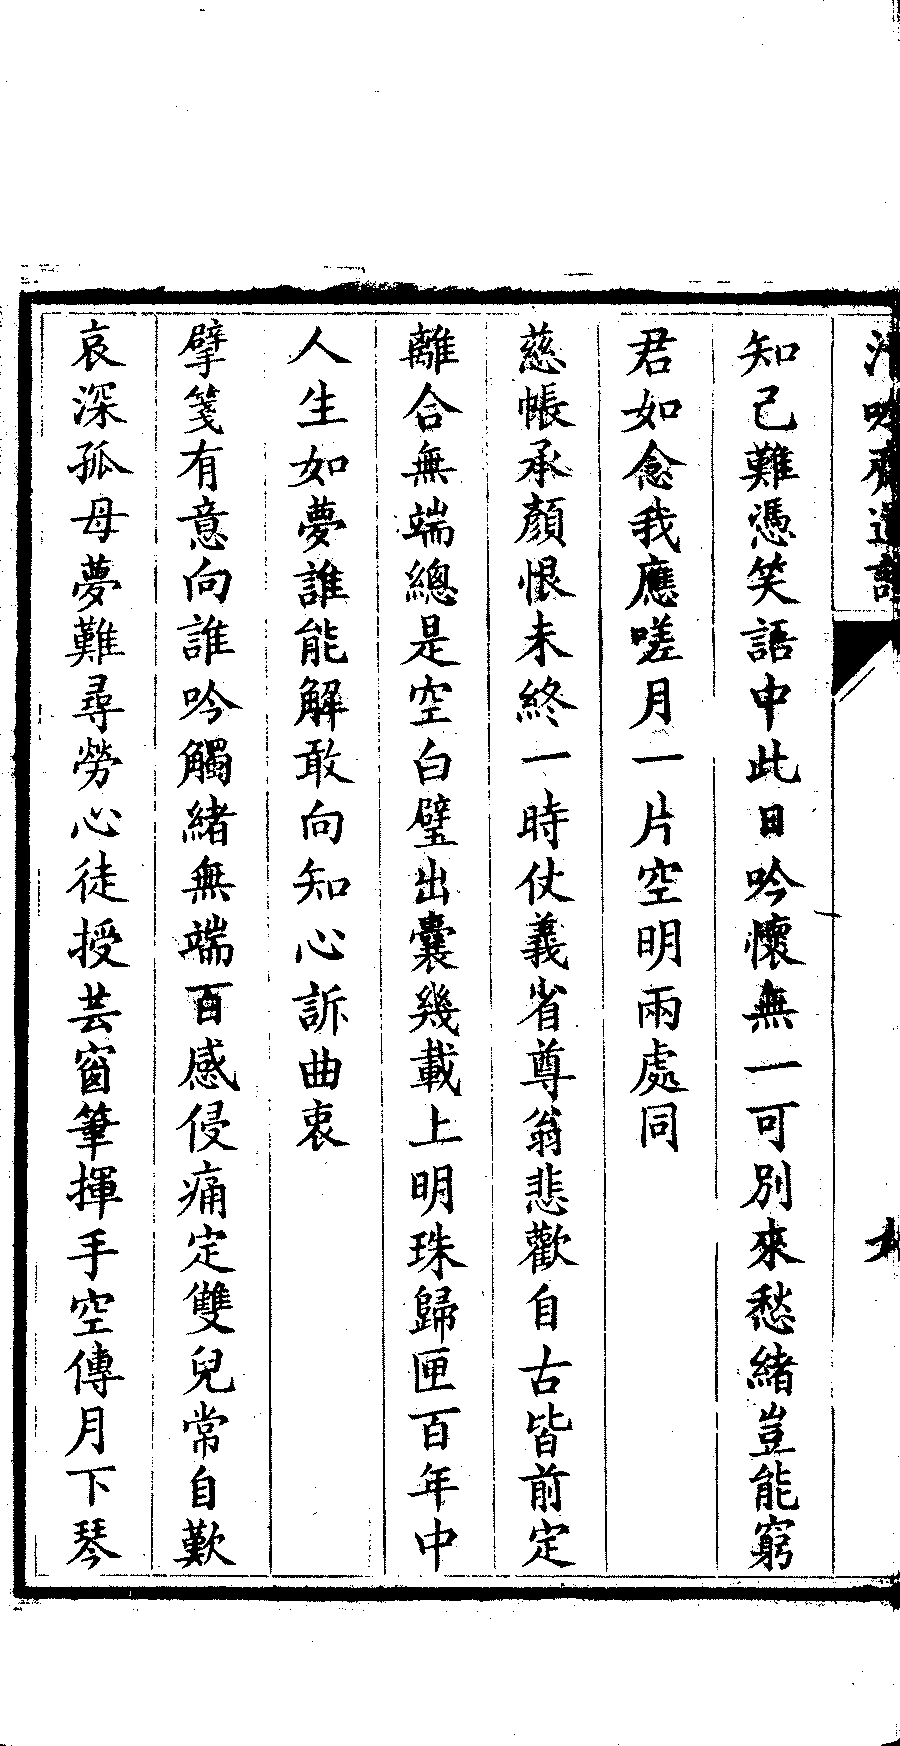 知己難憑笑語中此日吟懷無一可別來愁緒豈能窮
君如念我應嗟月一片空明兩處同
慈帳承顏恨未終一時仗義省尊翁悲歡自古皆前定
離合無端總是空白璧出囊幾載上明珠歸匣百年中
人生如夢誰能解敢向知心訴曲衷
擘箋有意向誰吟觸緒無端百感侵痛定雙兒常自歎
哀深孤母夢難尋勞心徒授芸窗筆揮手空傳月下琴